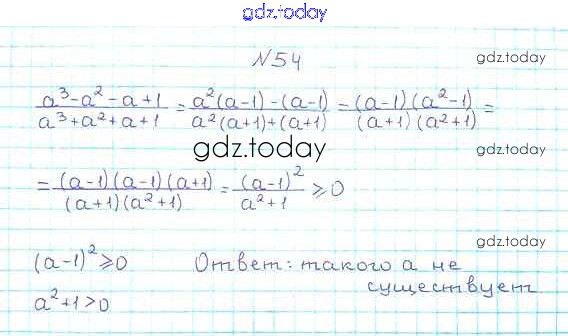 gdz.today
N54
gdz.today
(a³-a²-a+1)/(a³+a²+a+1) = (a²(a-1)-(a-1))/(a²(a+1)+(a+1)) = ((a-1)(a²-1))/((a+1)(a²+1)) =
gdz.today
gdz.today
= ((a-1)(a-1)(a+1))/((a+1)(a²+1)) = (a-1)²/(a²+1) ⩾0
gdz.today
(a-1)²⩾0 Ответ: такого а не
существует
a²+1>0
gdz.today